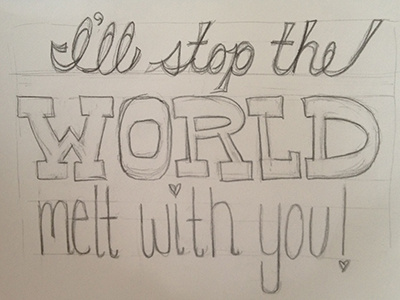 I'll stop the
WORLD
melt with you!